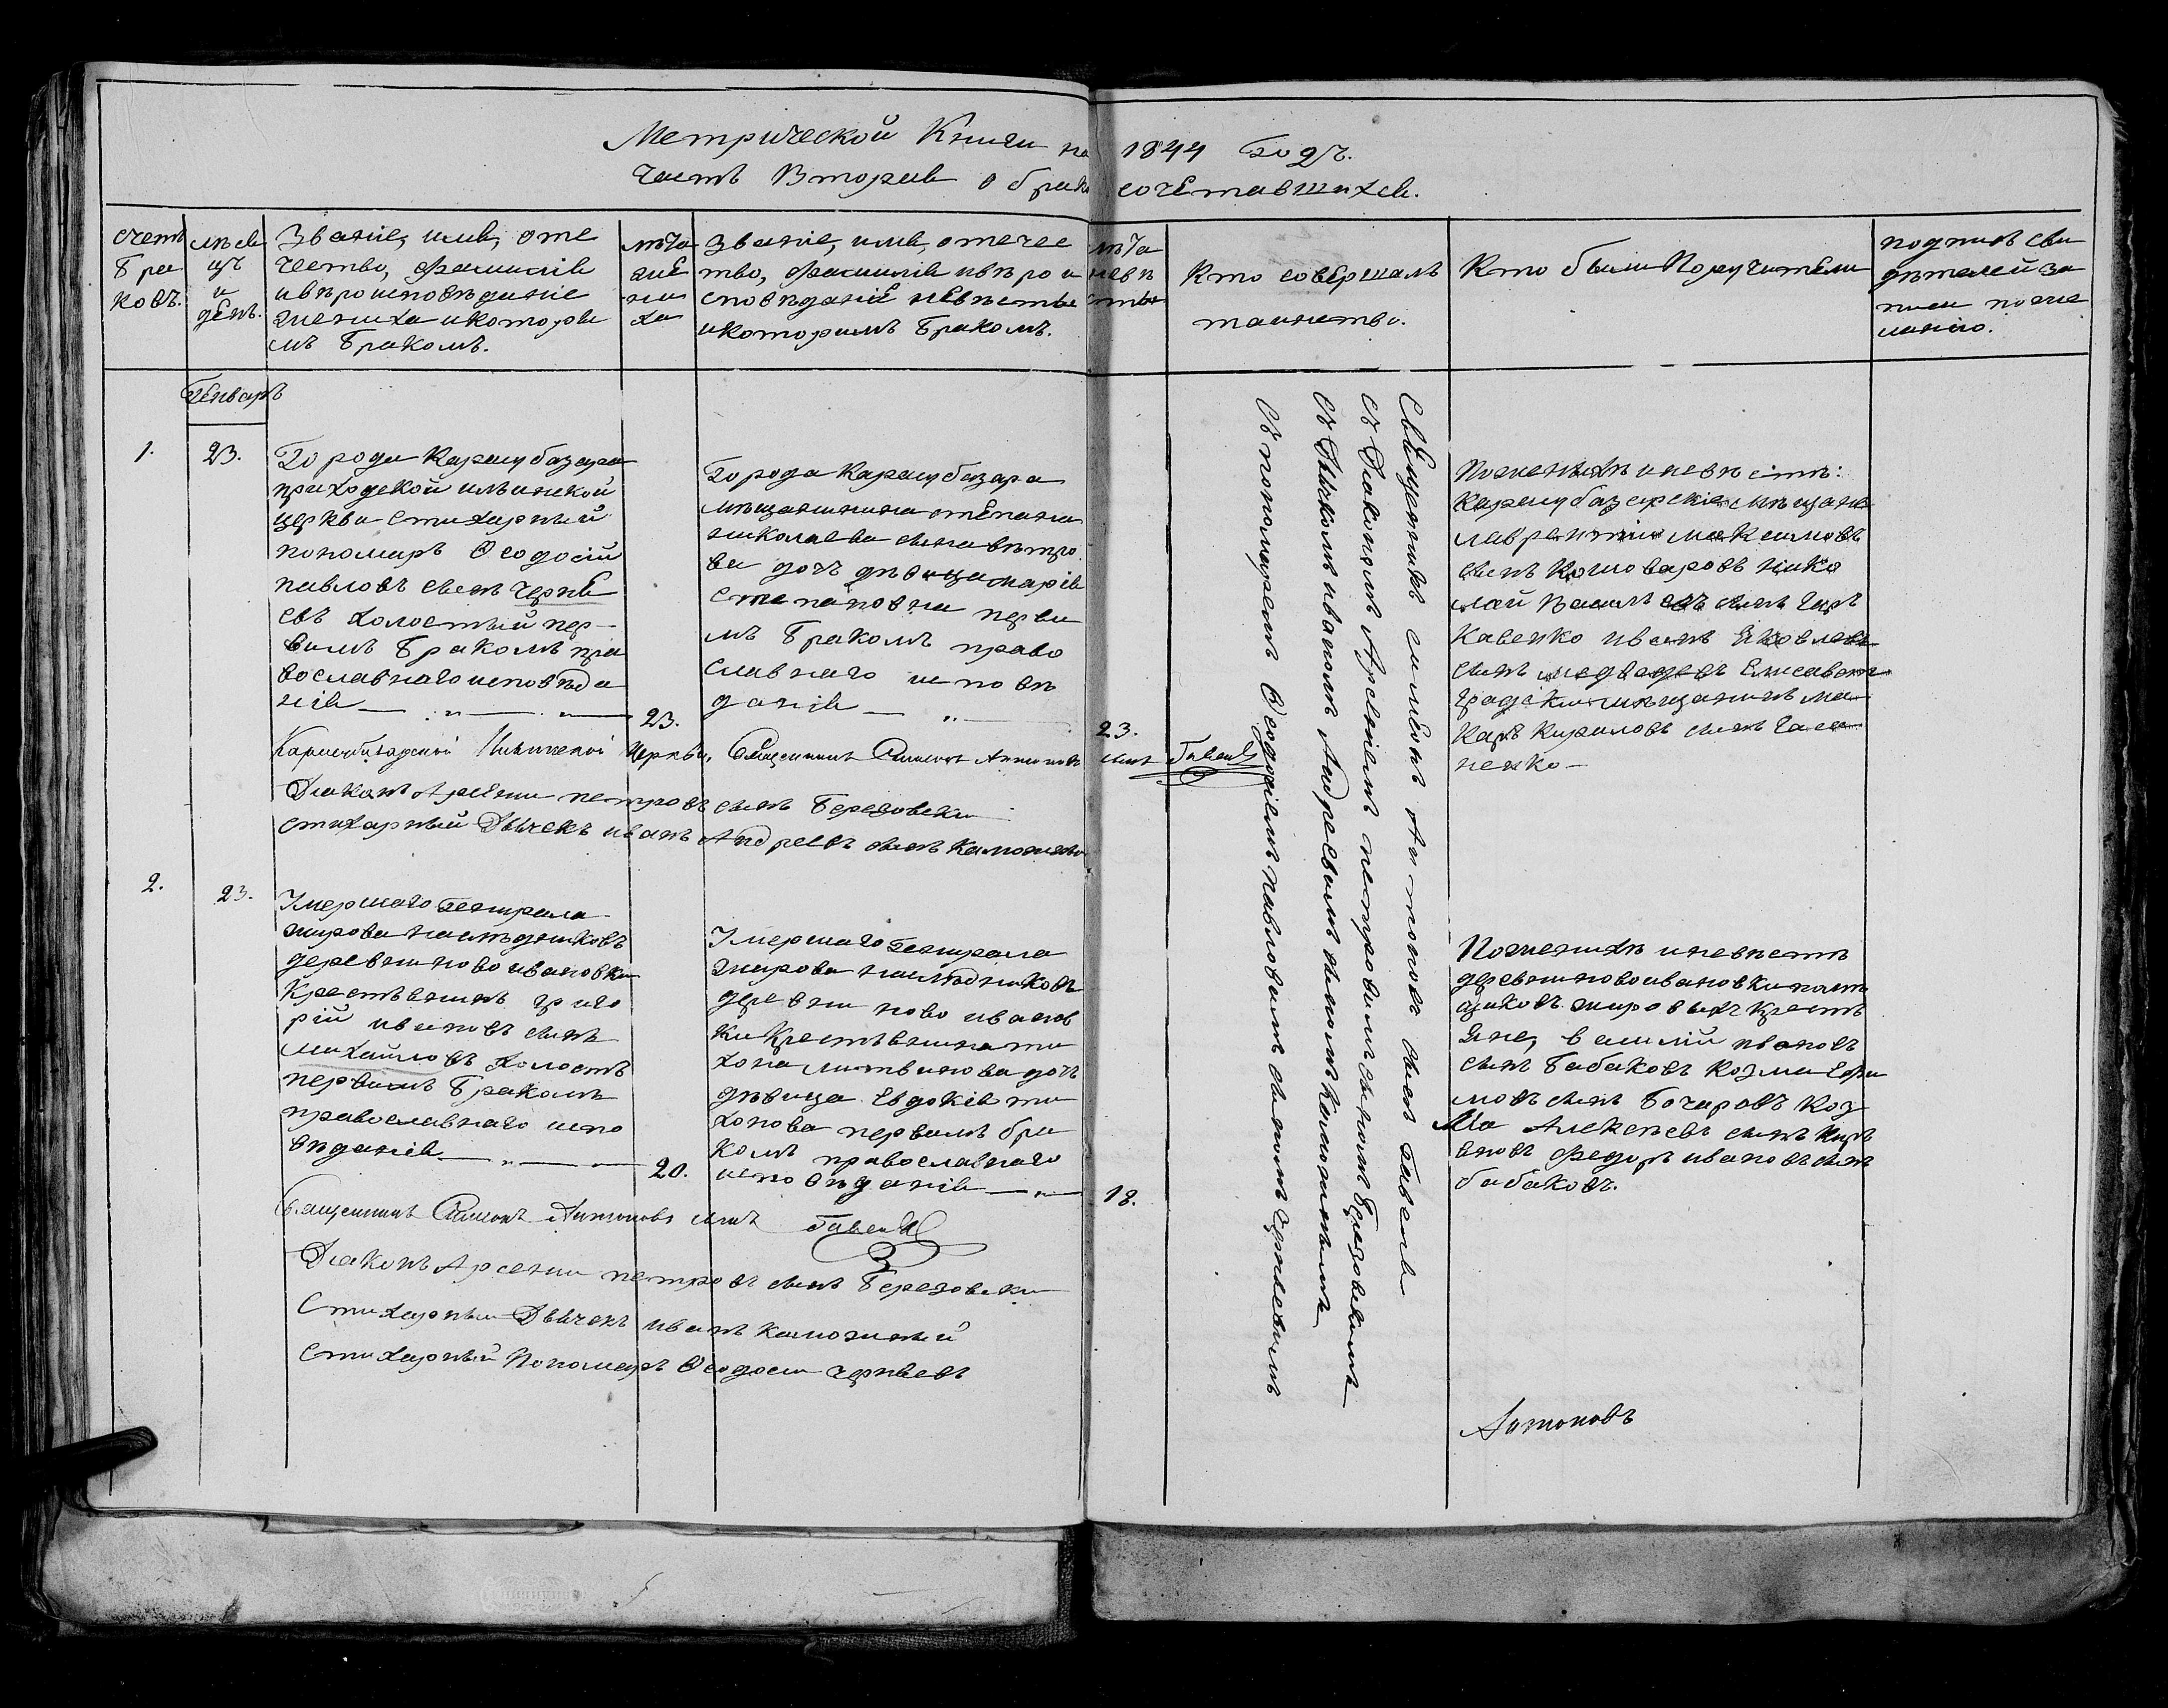 Метрической Книги на 1844 Годъ.
Часть Вторая о бракосочетавшихся.
счетъ
бра
ковъ.
мѣся
цъ
и
день.
Званіе, имя, оте
чество, фамилія
и вѣроисповѣданіе
жениха и которы
мъ бракомъ.
лѣта
же
ни
ха
Званіе, имя, отечес
тво, фамилія и вѣрои
сповѣданіе невѣсты
и которымъ бракомъ.
лѣта
невѣ
сты
Кто совершалъ
таинство.
Кто были Поручители
подписъ сви
дѣтелей за
писи по же
ланію.
Генваръ
1.
23.
Города Карасубазара
приходской ильинской
церкви стихарный
пономаръ Ѳеодосій
павловъ сынъ Черне
евъ холостый пер-
вымъ бракомъ пра
вославнаго исповѣда
нія
23.
Города Карасубазара
мѣщанина степана
николаева сына вѣтро
ва дочъ дѣвица марія
степановна первы
мъ бракомъ право
славнаго исповѣ
данія
23.
Священникъ симеонъ Антоновъ сынъ Бавель
съ Діакономъ Арсеніемъ петровымъ сыномъ Березовскимъ
съ Дьячкомъ иваномъ Андреевымъ сыномъ Каможнымъ
съ пономаремъ Ѳеодосіемъ павловымъ сыномъ Чернеевымъ
По женихѣ и невѣстѣ:
Карасубазарскіе мѣщане
лаврентій максимовъ
сынъ Кошоваровъ нико
лай Васильевъ сынъ Гар
кавенко иванъ Яковлевъ
сынъ медведевъ Елисавет
градскій мѣщанинъ ма
каръ Кириловъ сынъ Гала
ненко
Карасубазарской Ильинской Церкви, Священникъ Симеонъ Антоновъ сынъ Бавель
Діаконъ Арсении петровъ сынъ Березовски
стихарный Дьячекъ иванъ Андреевъ сынъ Каможны
2.
23.
Умершаго Генерала
жирова наслѣдниковъ
деревни новоивановки
Крестьянинъ григо
рій ивановъ сынъ
михайловъ холостъ
первымъ бракомъ
православнаго испо
вѣданія
20.
Умершаго Генерала
жирова наслѣдниковъ
деревни новоиванов
ки Крестьянина ти
хона литвинова дочъ
дѣвица Евдокія ти
хонова первымъ бра
комъ православнаго
исповѣданія
18.
По женихѣ и невѣстѣ
деревни новоивановки помѣ
щиковъ жировыхъ крестъ
яне, василій ивановъ
сынъ Бабаковъ Козма Ефи
мовъ сынъ Бочаровъ Коз
Ма Алексѣевъ сынъ
Федоръ ивановъ сынъ
бабаковъ.
Священникъ Симеонъ Антоновъ сынъ Бавель
Діаконъ Арсении петровъ сынъ Березовски
Стихарныи Дьячекъ иванъ каможный
стихарный Пономаръ Ѳеодоси чернеевъ
Антоновъ